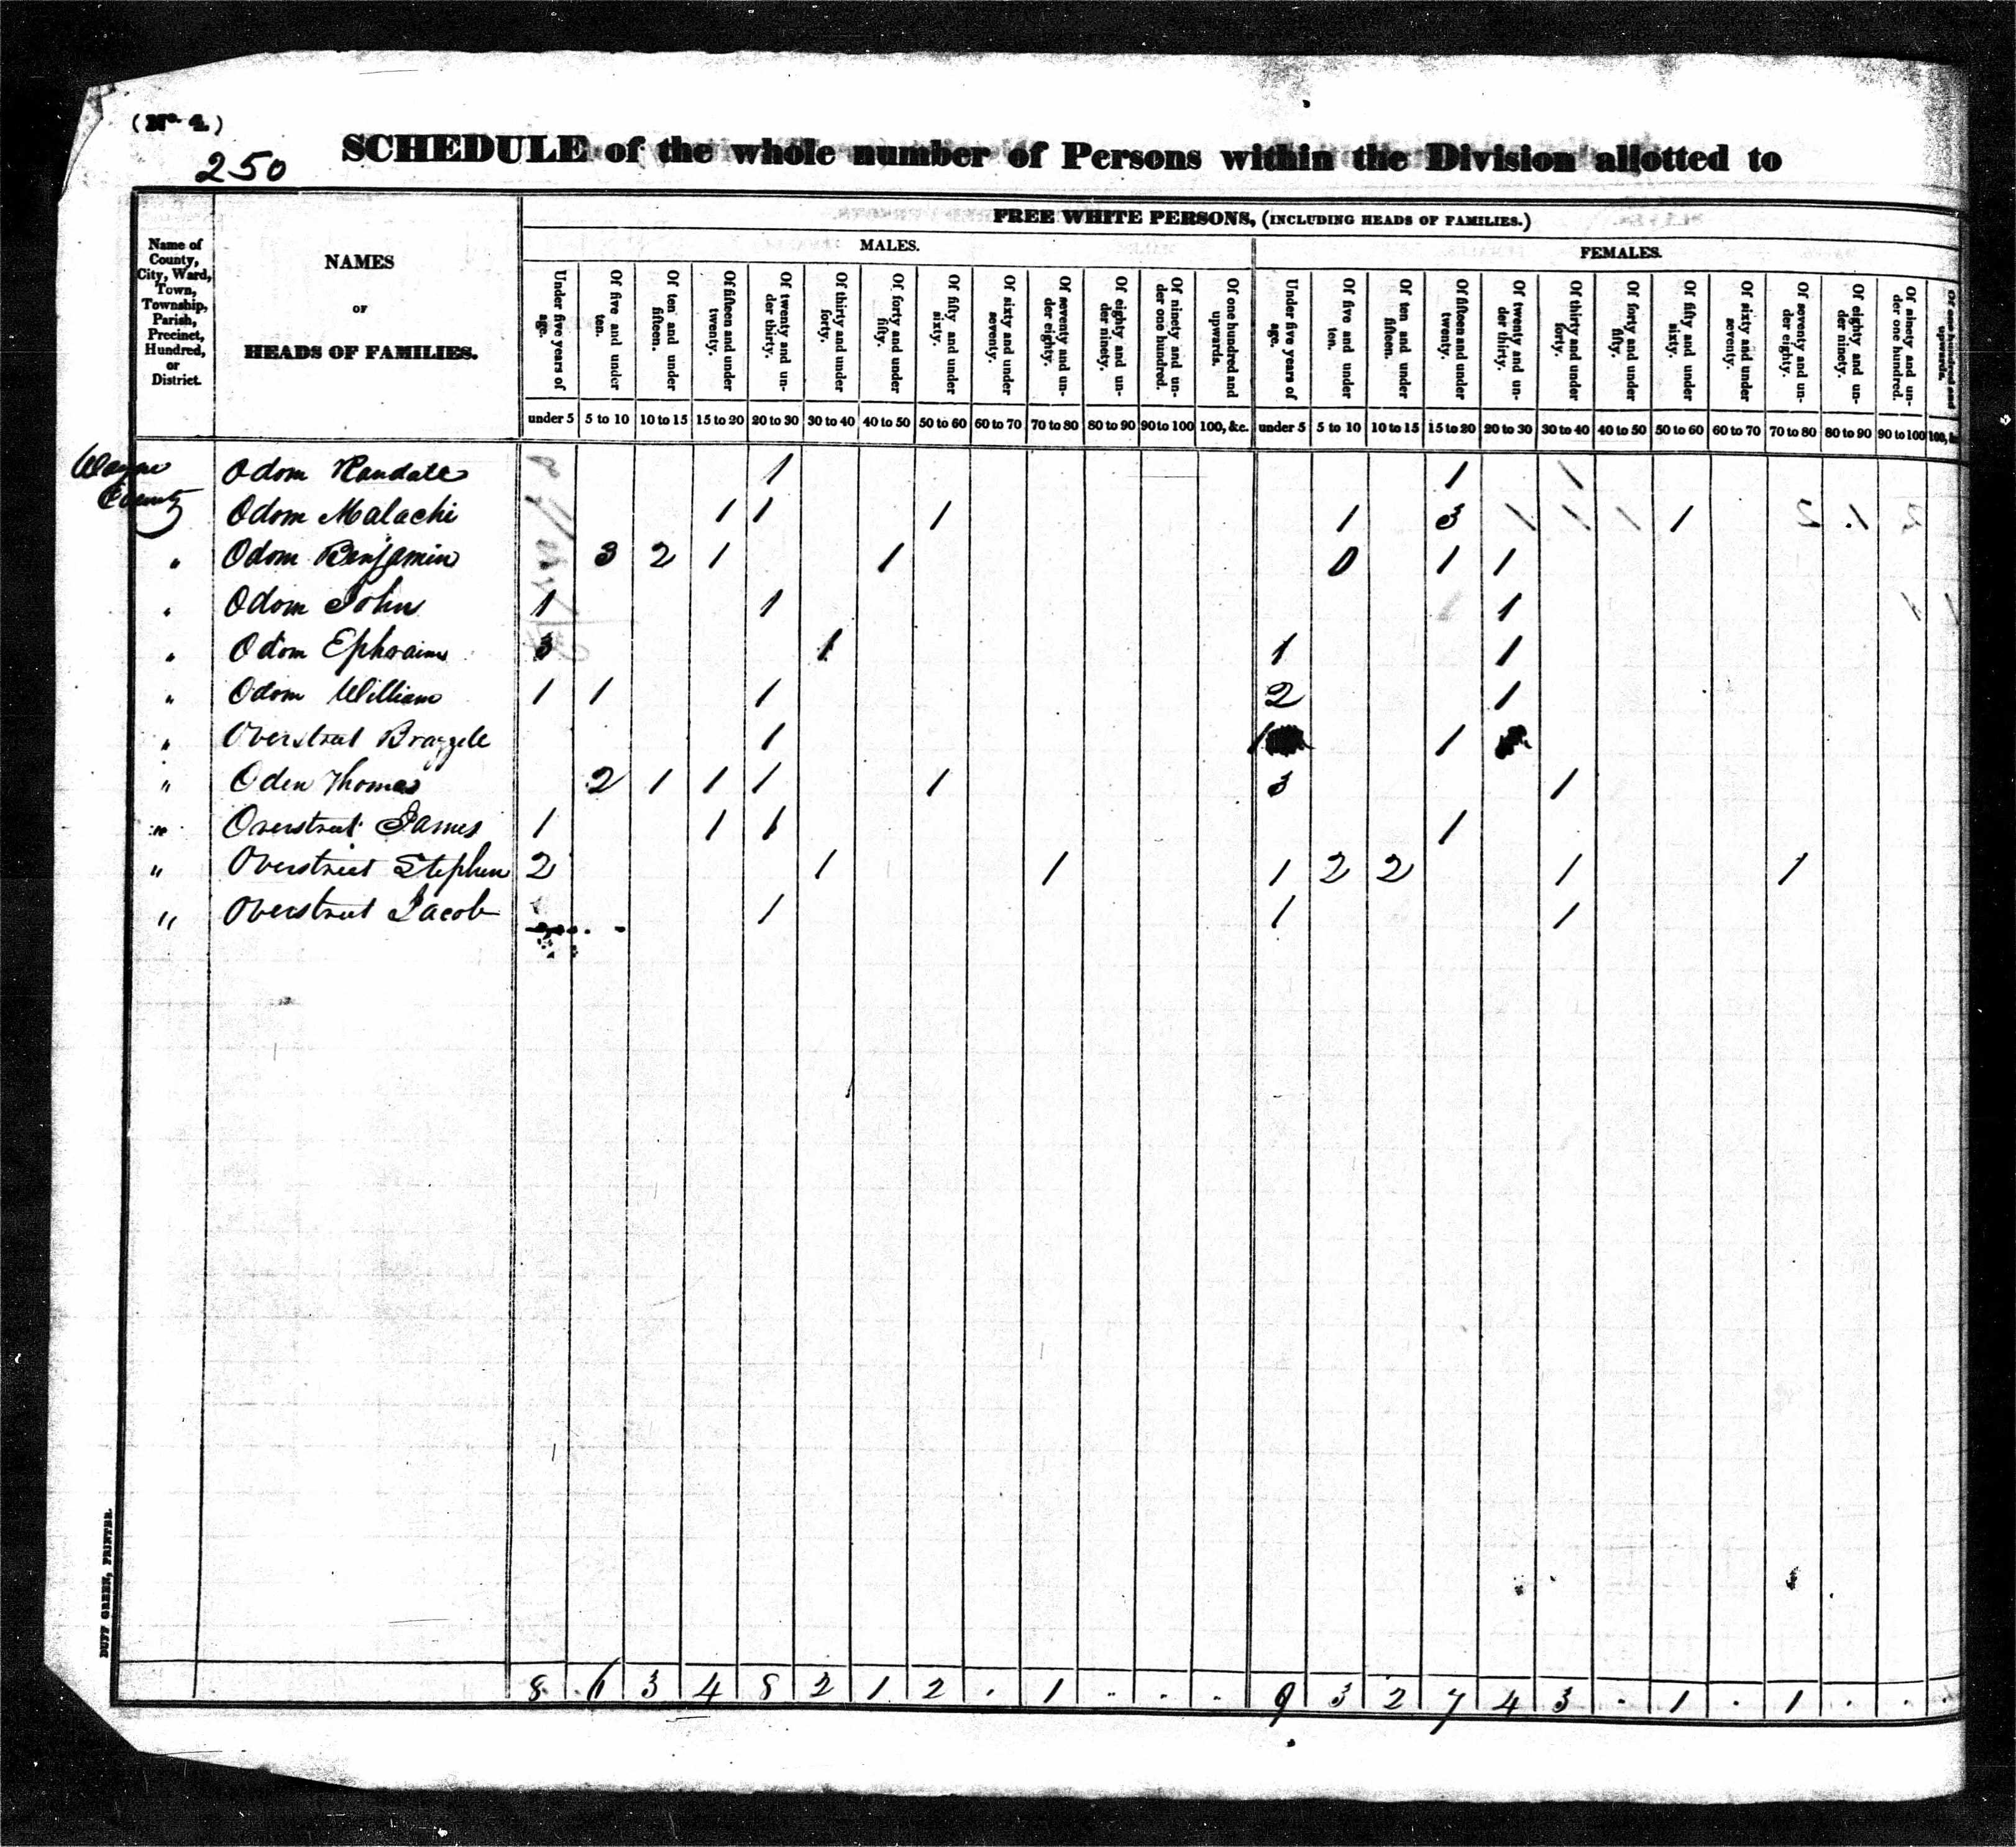 (No. 4.)
250
SCHEDULE of the whole number of Persons within the Division allotted to
FREE WHITE PERSONS, (INCLUDING HEADS OF FAMILIES.)
MALES. FEMALES.
Name of County, City, Ward, Town, Township, Parish, Precinct, Hundred, or District.
NAMES OF HEADS OF FAMILIES.
Under five years of age. Of five and under ten. Of ten and under fifteen. Of fifteen and under twenty. Of twenty and under thirty. Of thirty and under forty. Of forty and under fifty. Of fifty and under sixty. Of sixty and under seventy. Of seventy and under eighty. Of eighty and under ninety. Of ninety and under one hundred. Of one hundred and upwards. Under five years of age. Of five and under ten. Of ten and under fifteen. Of fifteen and under twenty. Of twenty and under thirty. Of thirty and under forty. Of forty and under fifty. Of fifty and under sixty. Of sixty and under seventy. Of seventy and under eighty. Of eighty and under ninety. Of ninety and under one hundred. Of one hundred and upwards.
under 5 5 to 10 10 to 15 15 to 20 20 to 30 30 to 40 40 to 50 50 to 60 60 to 70 70 to 80 80 to 90 90 to 100 100, &c. under 5 5 to 10 10 to 15 15 to 20 20 to 30 30 to 40 40 to 50 50 to 60 60 to 70 70 to 80 80 to 90 90 to 100 100, &c
Wayne County
Odom Randale 1 1
Odom Malachi 1 1 1 1 3 1
" Odom Benjamin 3 2 1 1 0 1 1
" Odom John 1 1 1
" Odom Ephraim 3 1 1 1
" Odom William 1 1 1 2 1
" Overstreet 1 1 1
" Oden Thomas 2 1 1 1 1 3 1
" Overstreet James 1 1 1 1
" Overstreet Stephen 2 1 1 1 2 2 1 1
" Overstreet Jacob 1 1 1
8 6 3 4 8 2 1 2 . 1 . . . 9 3 2 7 4 3 . 1 . 1 . . .
DUFF GREEN, PRINTER.